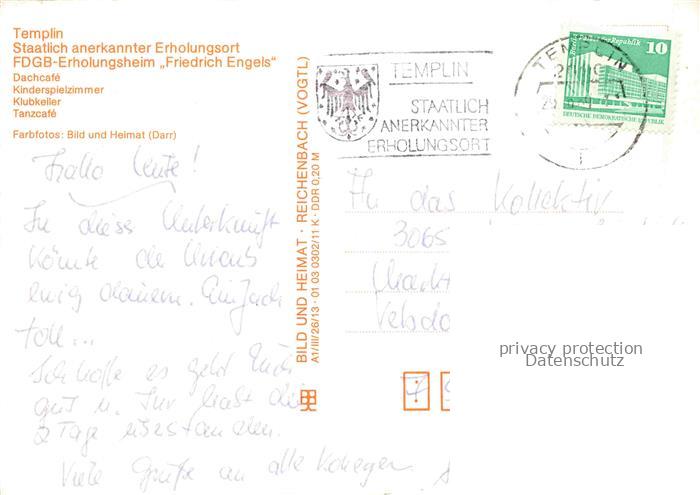 Templin
Staatlich anerkannter Erholungsort
FDGB-Erholungsheim „Friedrich Engels“
Dachcafé
Kinderspielzimmer
Klubkeller
Tanzcafé
Farbfotos: Bild und Heimat (Darr)
Hallo Leute!
In dieser Unterkunft
könnte der Urlaub
ewig dauern. Einfach
toll...
Ich hoffe es geht Euch
gut u. Ihr habt die
2 Tage überstanden.
Viele Grüße an alle Kollegen
BILD UND HEIMAT · REICHENBACH (VOGTL)
A1/III/26/13 · 01 03 0302/11 K · DDR 0,20 M
TEMPLIN
STAATLICH
ANERKANNTER
ERHOLUNGSORT
TEMPLIN
10
DEUTSCHE DEMOKRATISCHE REPUBLIK
An das Kollektiv
3065
privacy protection
Datenschutz